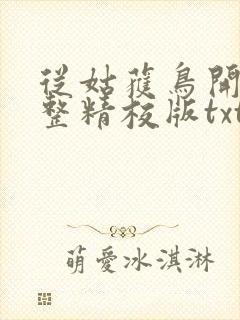 從姑獲鳥開
整精校版txt
萌愛冰淇淋